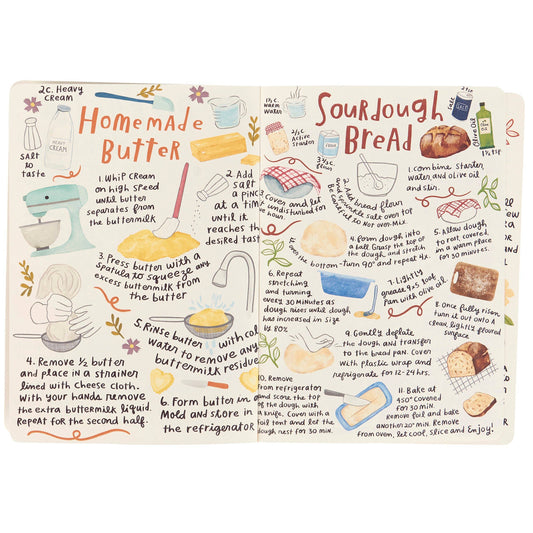 2C. Heavy
Cream
Homemade
Butter
HEAVY
CREAM
Salt
to
taste
1. Whip Cream
on high speed
until butter
separates from
the buttermilk
2. Add
salt
a pinch
at a time
until it
reaches the
desired taste
3. Press butter with a
spatula to squeeze any
excess buttermilk from
the butter
4. Remove ½ butter
and place in a strainer
lined with cheese cloth.
With your hands remove
the extra buttermilk liquid.
Repeat for the second half.
5. Rinse butter with cold
water to remove any
buttermilk residue
6. Form butter in a
Mold and store in
the refrigerator
Sourdough
Bread
Warm
Water
Active
Starter
flour
Salt
Olive Oil
1½ TSP
1. Combine starter
water and olive oil
and stir.
2. Add bread flour
and sprinkle salt over top
Be careful to not over-mix
3. Cover and let
sit undisturbed for
hours
4. Form dough into
a ball. Grasp the top of
the dough, and stretch
the bottom-turn 90° and repeat 4x.
5. Allow dough
to rest, covered,
in a warm place
for 30 minutes.
6. Repeat
stretching
and turning
every 30 minutes as
dough rises until dough
has increased in size
by 80%
7. Lightly
grease 9x5 loaf
pan with olive oil
8. Once fully risen
turn it out onto a
clean, lightly floured
surface
9. Gently deflate
the dough and transfer
to the bread pan. Cover
with plastic wrap and
refrigerate for 12-24 hrs.
10. Remove
from refrigerator
and score the top
of the dough with
a knife. Cover with a
foil tent and let the
dough rest for 30 min.
11. Bake at
450° covered
for 30 min.
Remove foil and bake
another 20 min. Remove
from oven, let cool, slice and Enjoy!